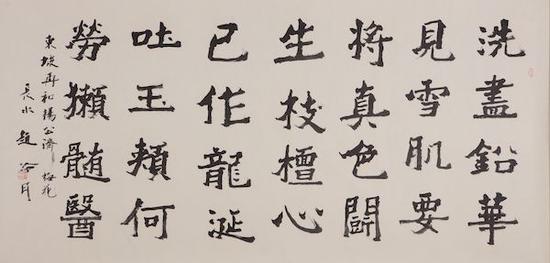 洗盡鉛華
見雪肌要
將真色闘
生枝檀心
已作龍涎
吐玉頰何
勞獺髓醫
東坡再和楊公濟梅花
長水趙冷月